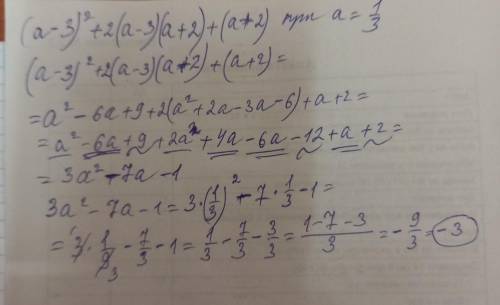 (a-3)²+2(a-3)(a+2)+(a+2) при a=1/3
(a-3)²+2(a-3)(a+2)+(a+2)=
=a²-6a+9+2(a²+2a-3a-6)+a+2=
=a²-6a+9+2a²+4a-6a-12+a+2=
=3a²-7a-1
3a²-7a-1=3·(1/3)²-7·1/3-1=
=3·1/9-7/3-1=1/3-7/3-3/3=(1-7-3)/3=-9/3=-3